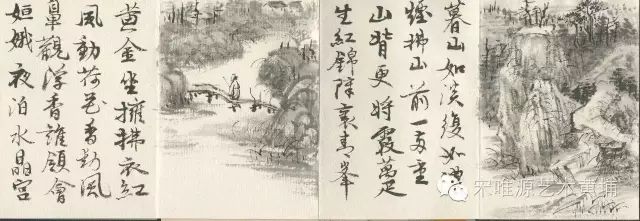 暮山如淡復如濃
煙拂山前一両重
山背更將霞萬疋
生紅錦障裹青峯
黄金坐擁拂衣紅
風動荷花香對風
鼻觀浮香誰領會
姮娥夜泊水晶宮
宋唯源艺术黄埔